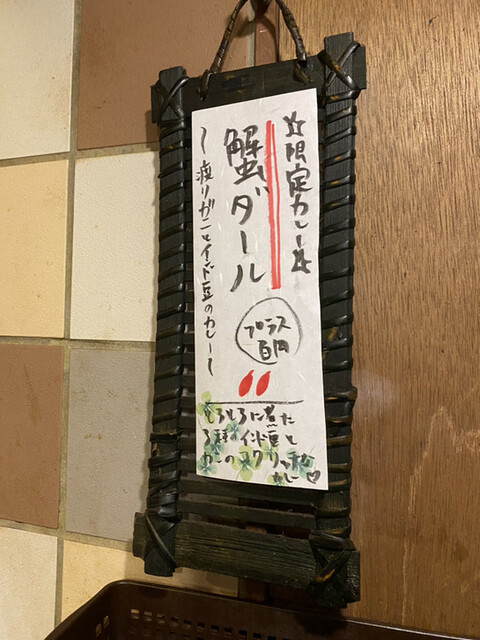 ☆限定カレー☆
蟹ダール
～渡りガニとインド豆のカレー～
プラス
百円
とろとろに煮た
3種のインド豆と
カニのコクリッチな
カレー♡